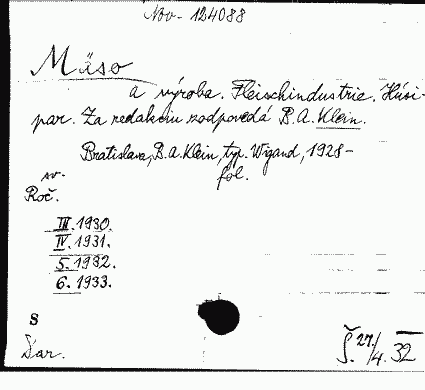 Nov - 124088
Mäso
a výroba. Fleischindustrie. Húsi-
par. Za redakciu zodpovedá B. A. Klein.
Bratislava, B. A. Klein, typ. Wigand, 1928 -
sv. fol.
Roč.
III. 1930.
IV. 1931.
5. 1932.
6. 1933.
S
Dar. Š. 27./4. 32